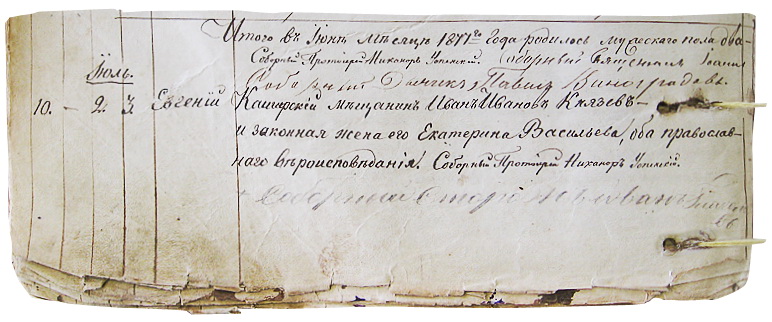 Итого въ Іюнѣ Мѣсяцѣ 1871го года родилось мужескаго пола два-
Соборный Протоіерей Никаноръ Успенскій. Соборный Священникъ Іоаннъ
Соборный Діачекъ Павелъ Виноградовъ.
Іюль.
10. – 2. 3. Евгеній Каширскій мѣщанинъ Иванъ Ивановъ Князевъ –
и законная жена его Екатерина Васильева, оба православ-
наго вѣроисповѣданія. Соборный Протоіерей Никаноръ Успенскій.
Соборный